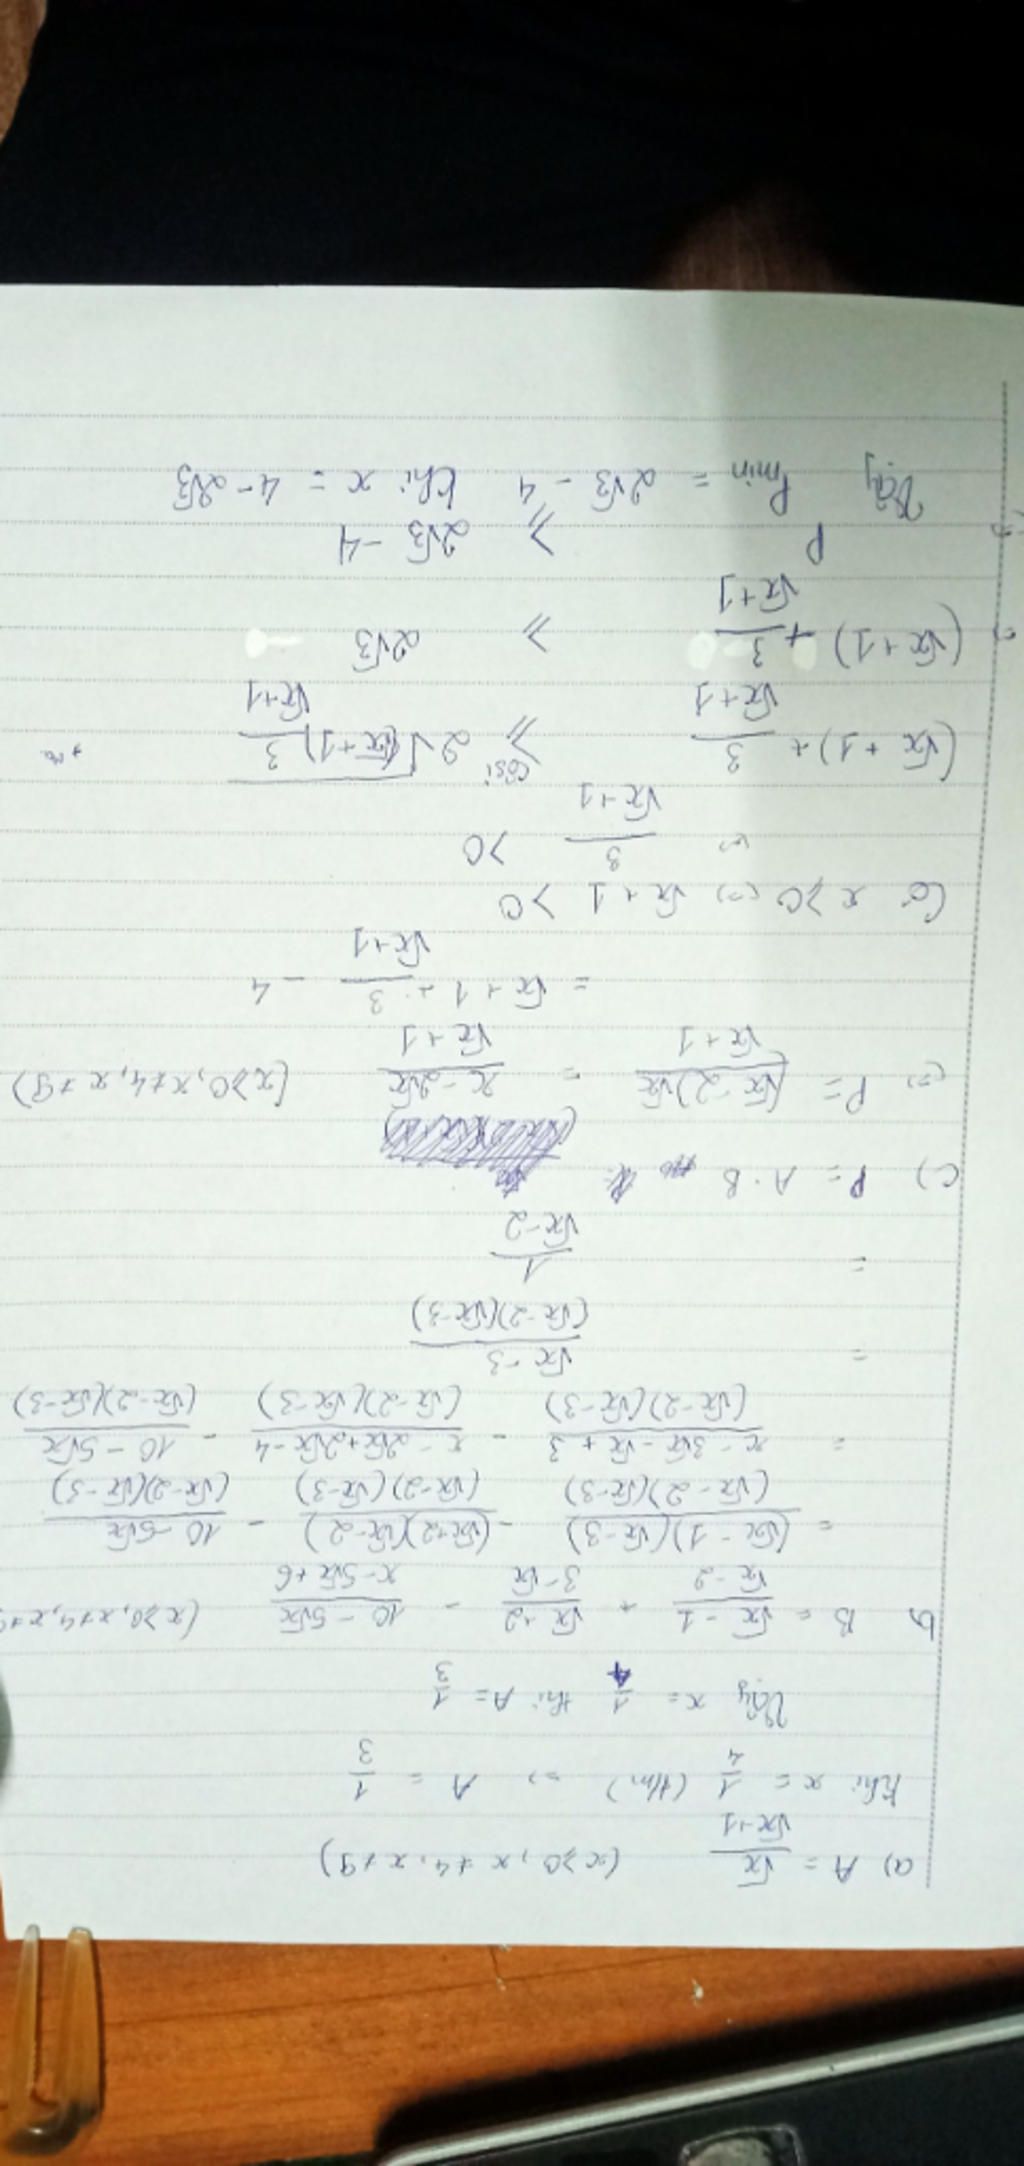 a) A = √x / (√x+1) (x ≥ 0, x ≠ 4, x ≠ 9)
Khi x = 1/4 (t/m) => A = 1/3
Vậy x = 1/4 thì A = 1/3
b, B = (√x - 1)/(√x - 2) + (√x + 2)/(3 - √x) - (10 - 5√x)/(x - 5√x + 6) (x ≥ 0, x ≠ 4, x ≠ 9
= (√x - 1)(√x - 3)/(√x - 2)(√x - 3) - (√x+2)(√x-2)/(√x-2)(√x-3) - (10 - 5√x)/(√x-2)(√x-3)
= (x - 3√x - √x + 3)/(√x - 2)(√x - 3) - (x - 2√x + 2√x - 4)/(√x - 2)(√x - 3) - (10 - 5√x)/(√x-2)(√x-3)
= (√x - 3)/(√x - 2)(√x - 3)
= 1/(√x - 2)
c) P = A . B
<=> P = (√x - 2)√x/(√x + 1) = (x - 2√x)/(√x + 1) (x ≥ 0, x ≠ 4, x ≠ 9)
= √x + 1 + 3/(√x+1) - 4
Có x ≥ 0 <=> √x + 1 > 0
<=> 3/(√x+1) > 0
(√x + 1) + 3/(√x+1) ≥ cosi 2√((√x+1) 3/(√x+1))
<=> (√x+1) + 3/(√x+1) ≥ 2√3
<=> P ≥ 2√3 - 4
Vậy Pmin = 2√3 - 4 khi x = 4 - 2√3